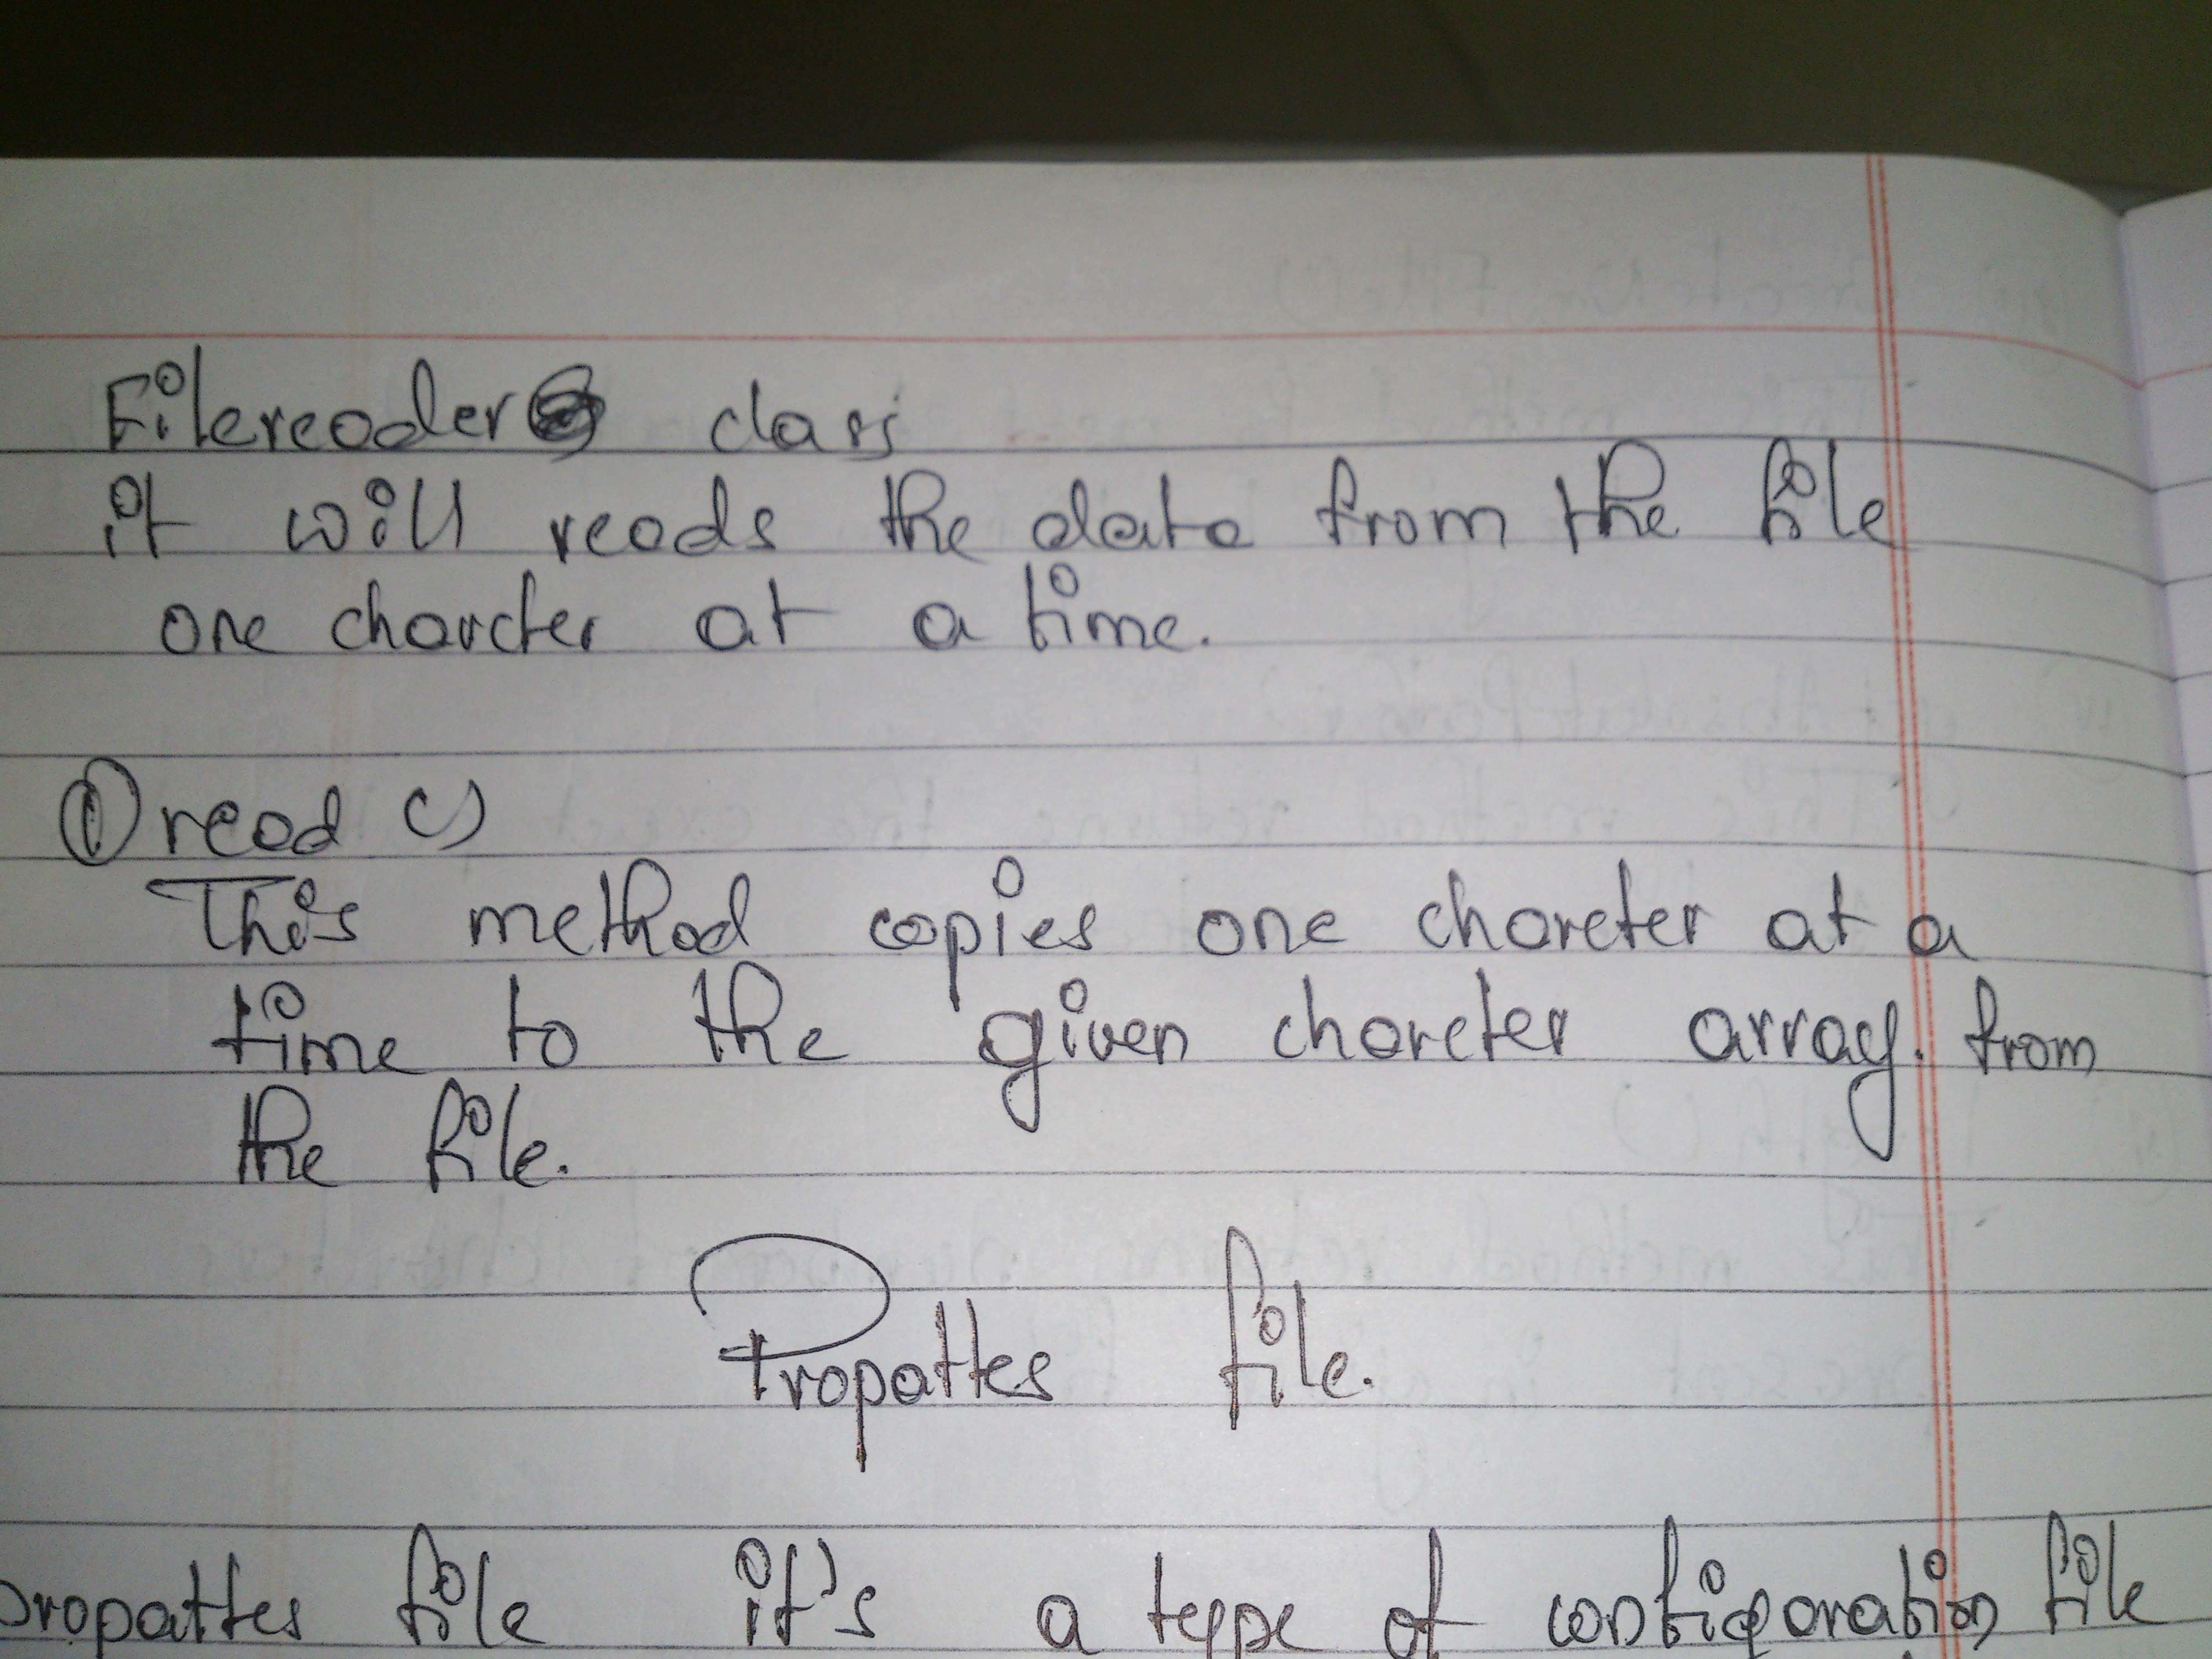 Filereader class
it will reads the data from the file
one charcter at a time.
① read ()
This method copies one charcter at a
time to the given charcter array. from
the file.
Propattes file.
propattes file it's a type of configoration file